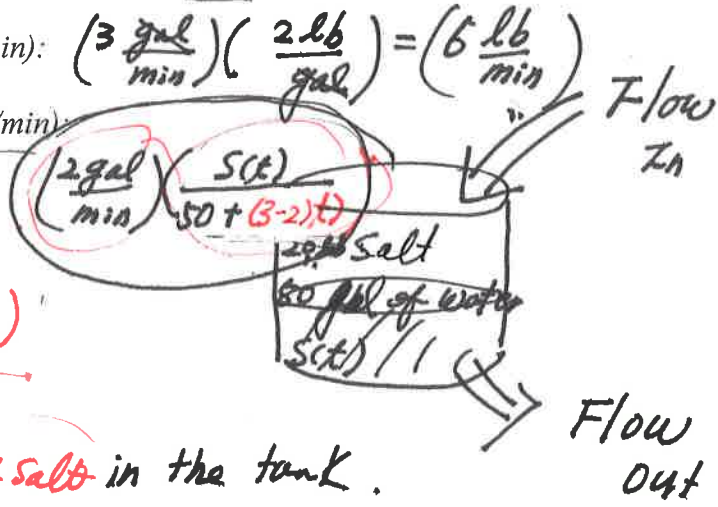 in): (3 gal/min)(2 lb/gal) = (6 lb/min)
/min):
Flow In
(2 gal/min)(S(t)/50 + (3-2)t)
Salt
50 gal of water
S(t)
)
Flow Out
Salt in the tank.